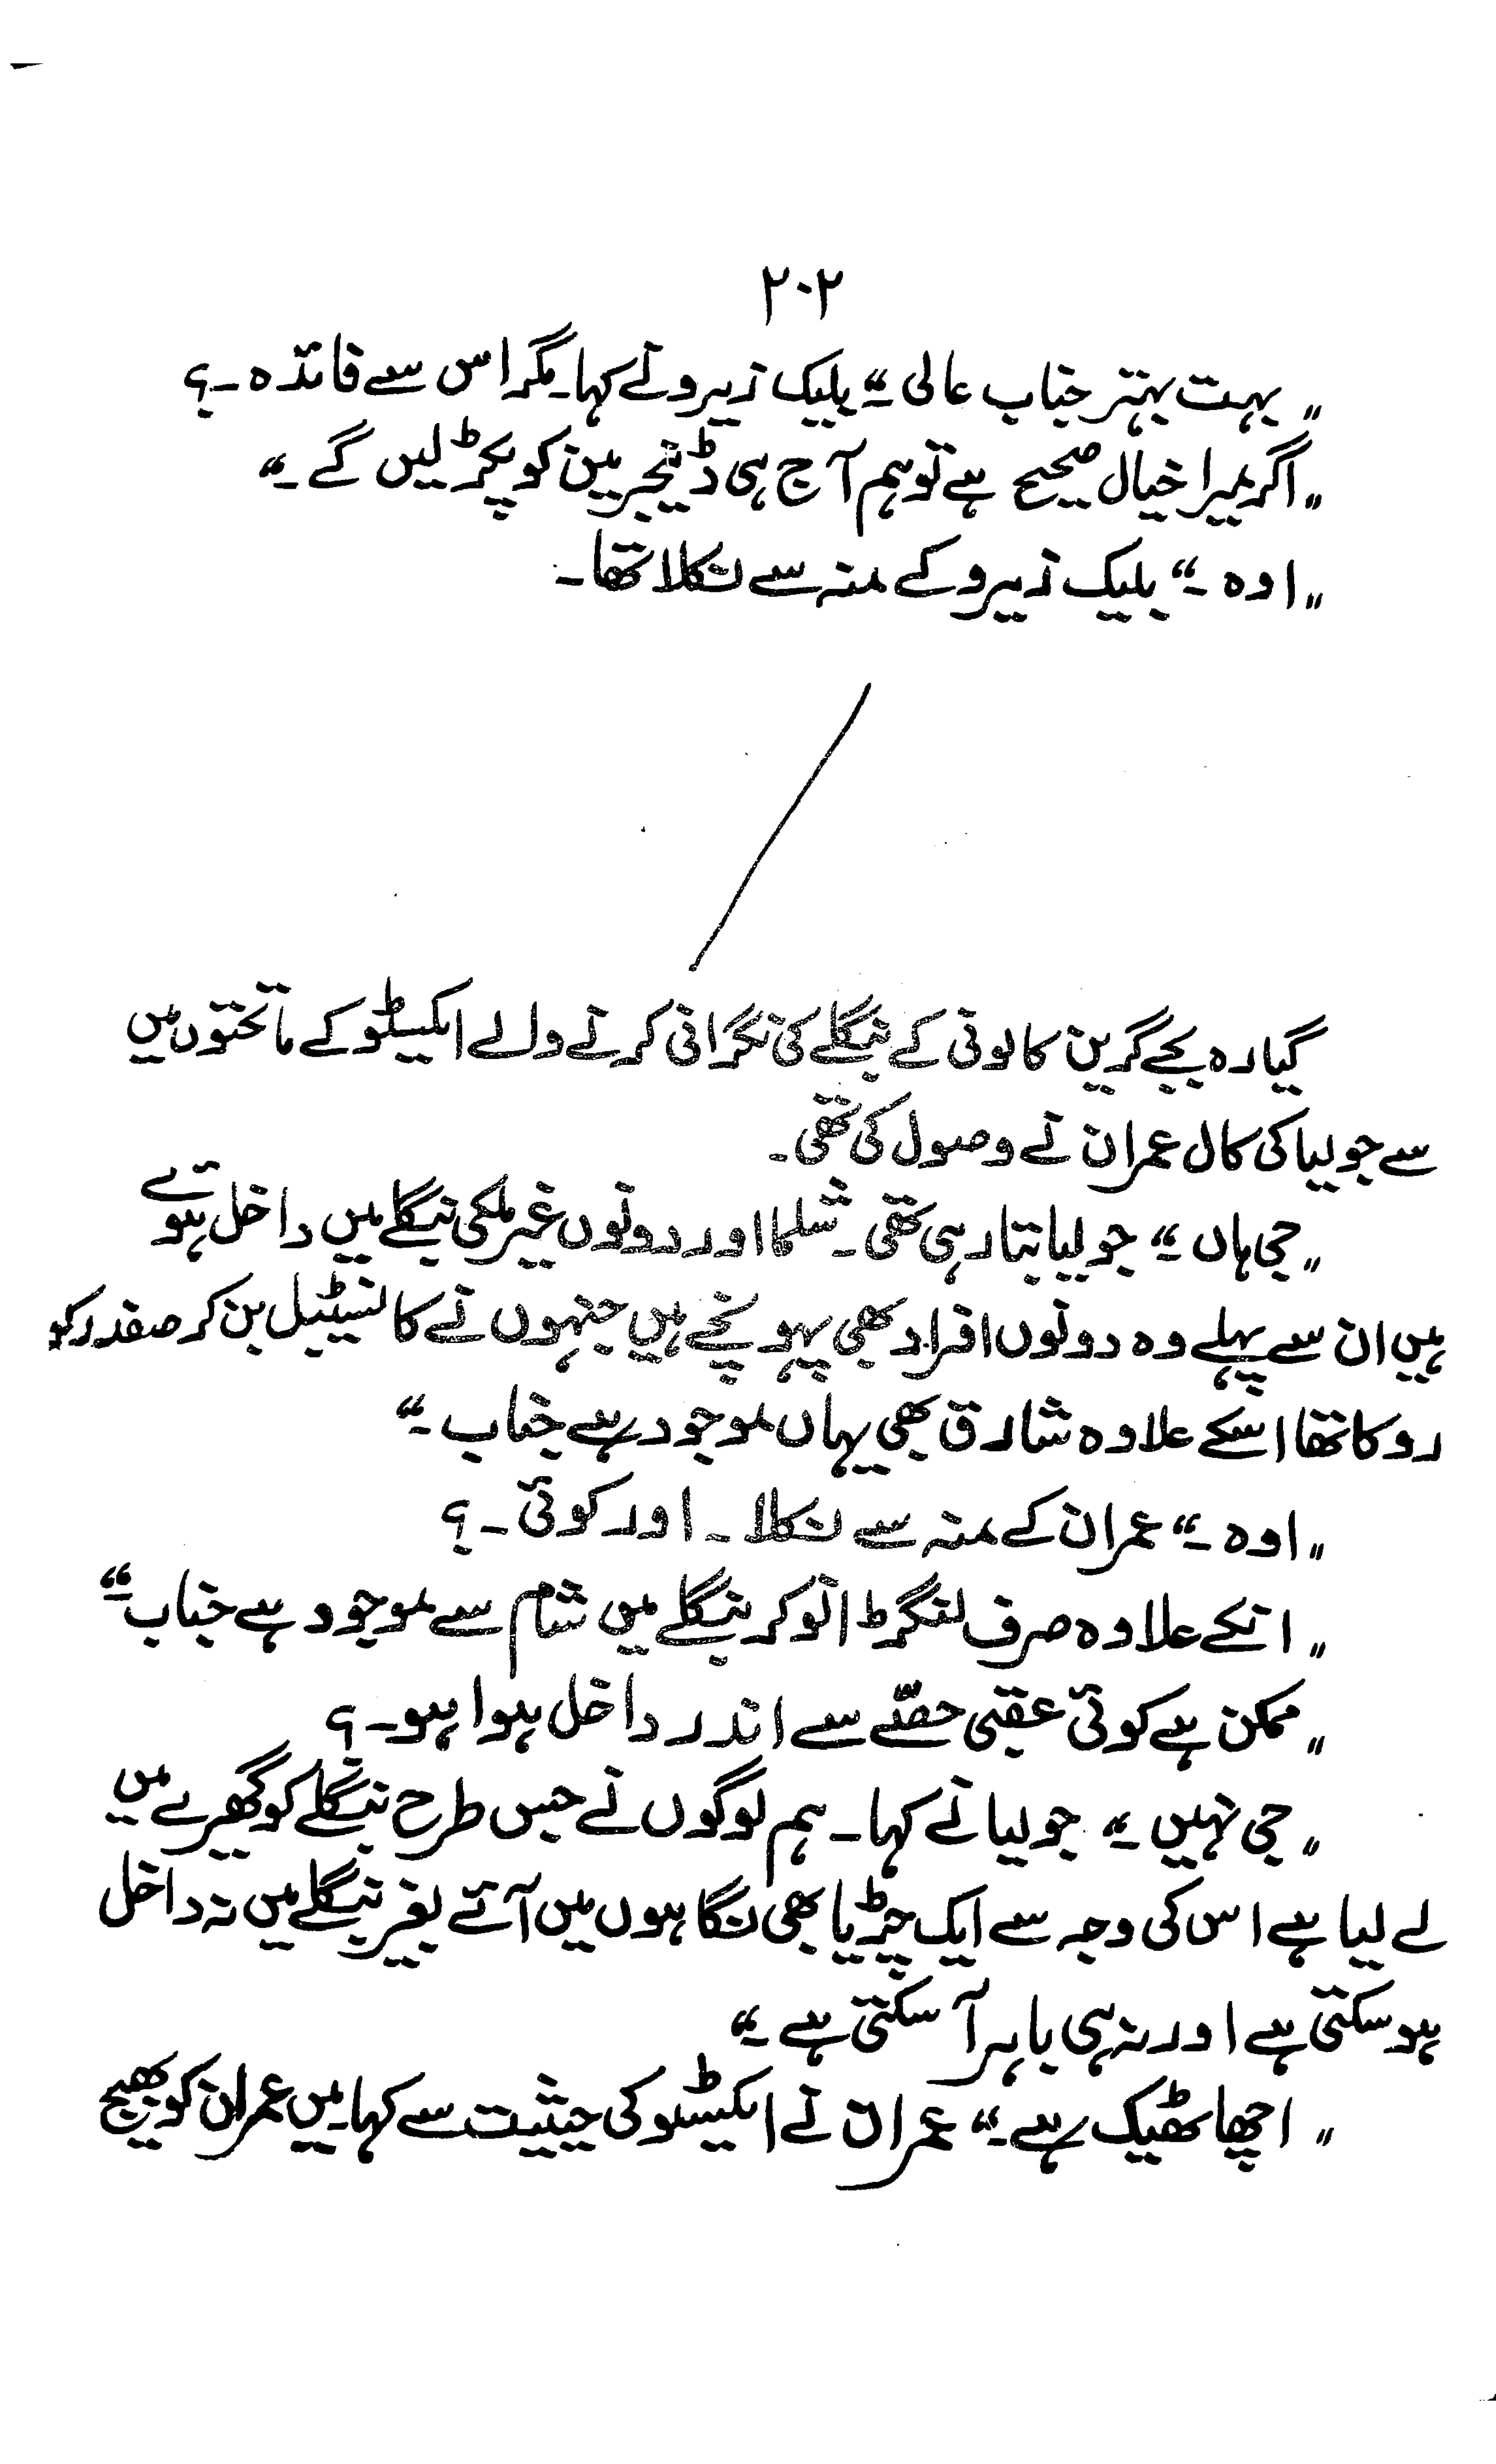 ۲۰۲
"بہت بہتر جناب عالی ۔" بلیک زیرو نے کہا۔ مگر اس سے فائدہ ۔؟
"اگر میرا خیال صحیح ہے تو ہم آج ہی ڈینجر مین کو پکڑ لیں گے ۔"
"اوہ ۔" بلیک زیرو کے منہ سے نکلا تھا ۔
گیارہ بجے گرین کالونی کے بنگلے کی نگرانی کرنے والے ایکسٹو کے ماتحتوں میں
سے جولیا کی کال عمران نے وصول کی تھی ۔
"جی ہاں ۔" جولیا بتا رہی تھی ۔ شلما اور دونوں غیر ملکی بنگلے میں داخل ہوئے
ہیں ان سے پہلے وہ دونوں افراد بھی پہونچے ہیں جنہوں نے کانسٹیبل بن کر صفدر کو
روکا تھا اسکے علاوہ شارق بھی یہاں موجود ہے جناب ۔"
"اوہ ۔" عمران کے منہ سے نکلا ۔ اور کوئی ۔؟
"انکے علاوہ صرف لنگڑا نوکر بنگلے میں شام سے موجود ہے جناب ۔"
"ممکن ہے کوئی عقبی حصّے سے اندر داخل ہوا ہو ۔؟
"جی نہیں ۔" جولیا نے کہا ۔ ہم لوگوں نے جس طرح بنگلے کو گھیرے میں
لے لیا ہے اس کی وجہ سے ایک چڑیا بھی نگاہوں میں آئے بغیر بنگلے میں نہ داخل
ہو سکتی ہے اور نہ ہی باہر آ سکتی ہے ۔"
"اچھا ٹھیک ہے ۔" عمران نے ایکسٹو کی حیثیت سے کہا۔ میں عمران کو بھیج